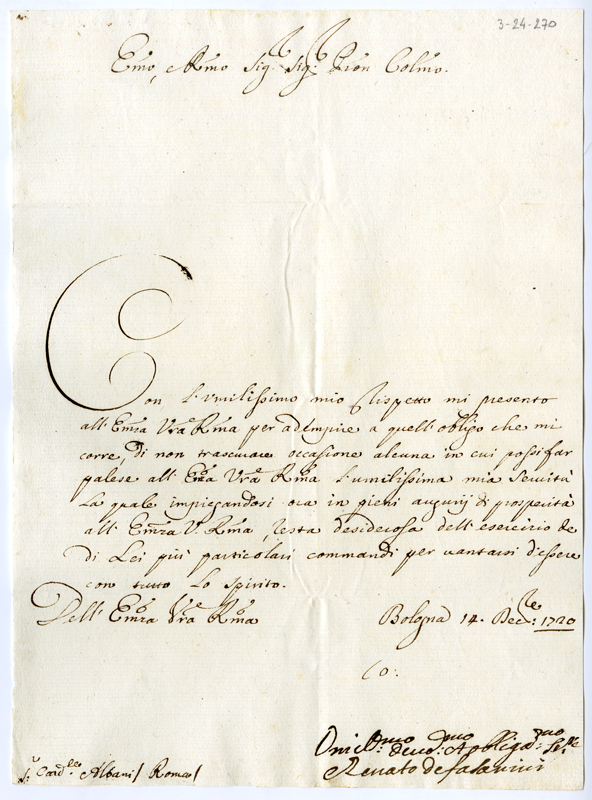 3-24-270
Emo, Rmo Sig.r Sig.r Pron Colmo.
Con l'vmilissimo mio Rispetto mi presento
all'Emza Vra Rma per adempire a quell'obligo che mi
corre, di non trascurare occasione alcuna in cui possi far
palese all'Emza Vra Rma l'umilissima mia Servitù
La quale impiegandosi ora in pieni augurij di prosperità
all'Emza V. Rma, resta desiderosa dell'esercizio de
di Lei più particolari commandi per vantarsi d'essere
con tutto Lo Spirito.
Dell'Emza Vra Rma Bologna 14. Decre: 1720
S.r Card.le Albani / Roma /
Vmilmo devmo ed obligmo Sere
Renato